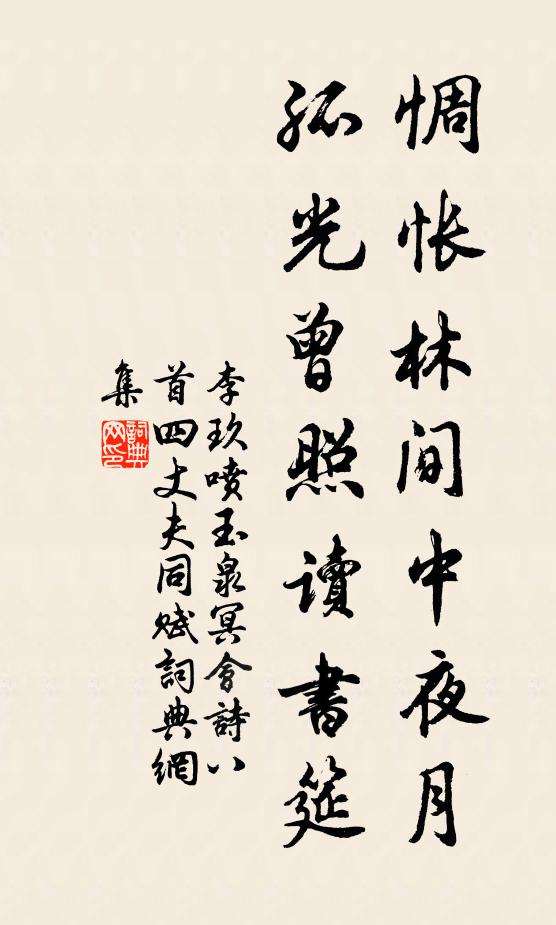 惆悵林間中夜月
孤光曾照讀書筵
李玖噴玉泉冥會詩八
首四丈夫同賦詞典網
集
詞典網印